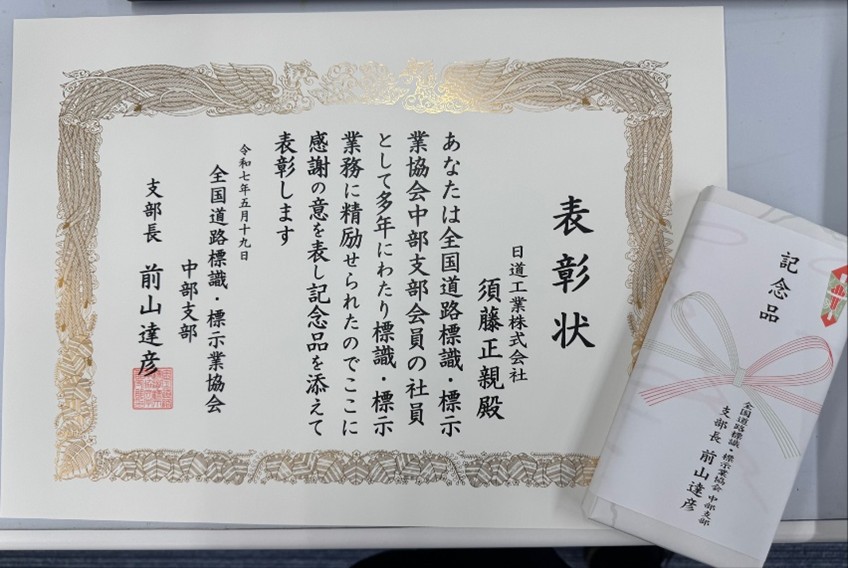 表彰状
日道工業株式会社
須藤正親殿
あなたは全国道路標識・標示
業協会中部支部会員の社員
として多年にわたり標識・標示
業務に精励せられたのでここに
感謝の意を表し記念品を添えて
表彰します
令和七年五月十九日
全国道路標識・標示業協会
中部支部
支部長 前山達彦
記念品
全国道路標識・標示業協会 中部支部
支部長 前山達彦